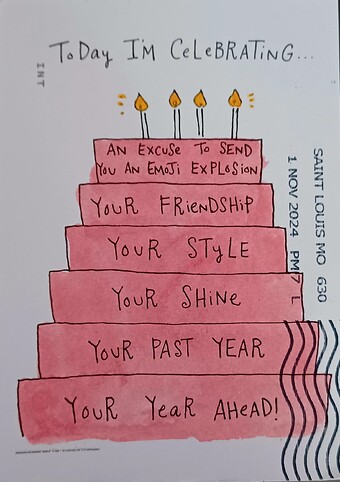 ToDay I'M CeLeBRATiNG...
INT
AN EXCUSE To SEND
YOU AN EMOJi EXPLOSioN
YoUR FRieNDSHiP
YoUR STyLE
YoUR SHiNe
YoUR PAST YEAR
YoUR YeaR AHeaD!
SAINT LOUIS MO 630
1 NOV 2024 PM 7 L